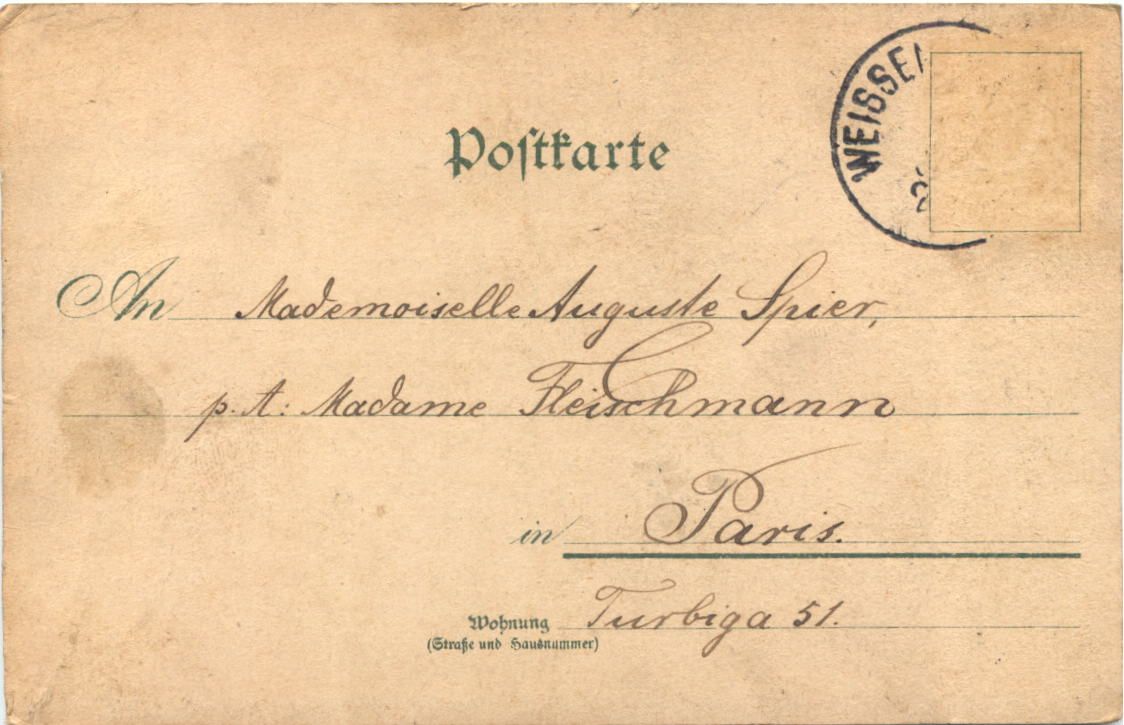 WEISSE
2
Postkarte
An Mademoiselle Auguste Spier,
p. A: Madame Fleischmann
in Paris.
Wohnung Turbiga 51.
(Straße und Hausnummer)